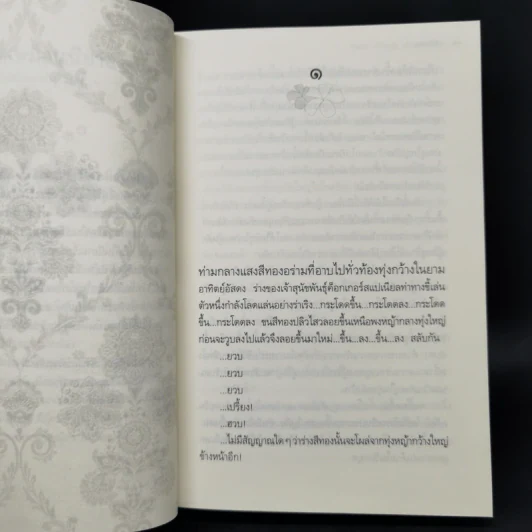 ๑
ท่ามกลางแสงสีทองอร่ามที่อาบไปทั่วท้องทุ่งกว้างในยาม
อาทิตย์อัสดง ร่างของเจ้าสุนัขพันธุ์ค็อกเกอร์สแปเนียลท่าทางขี้เล่น
ตัวหนึ่งกำลังโลดแล่นอย่างร่าเริง...กระโดดขึ้น...กระโดดลง...กระโดด
ขึ้น...กระโดดลง ขนสีทองปลิวไสวลอยขึ้นเหนือพงหญ้ากลางทุ่งใหญ่
ก่อนจะวูบลงไปแล้วจึงลอยขึ้นมาใหม่...ขึ้น...ลง...ขึ้น...ลง สลับกัน
...ยวบ
...ยวบ
...ยวบ
...เปรี้ยง!
...ฮวบ!
...ไม่มีสัญญาณใดๆ ว่าร่างสีทองนั้นจะโผล่จากทุ่งหญ้ากว้างใหญ่
ข้างหน้าอีก!